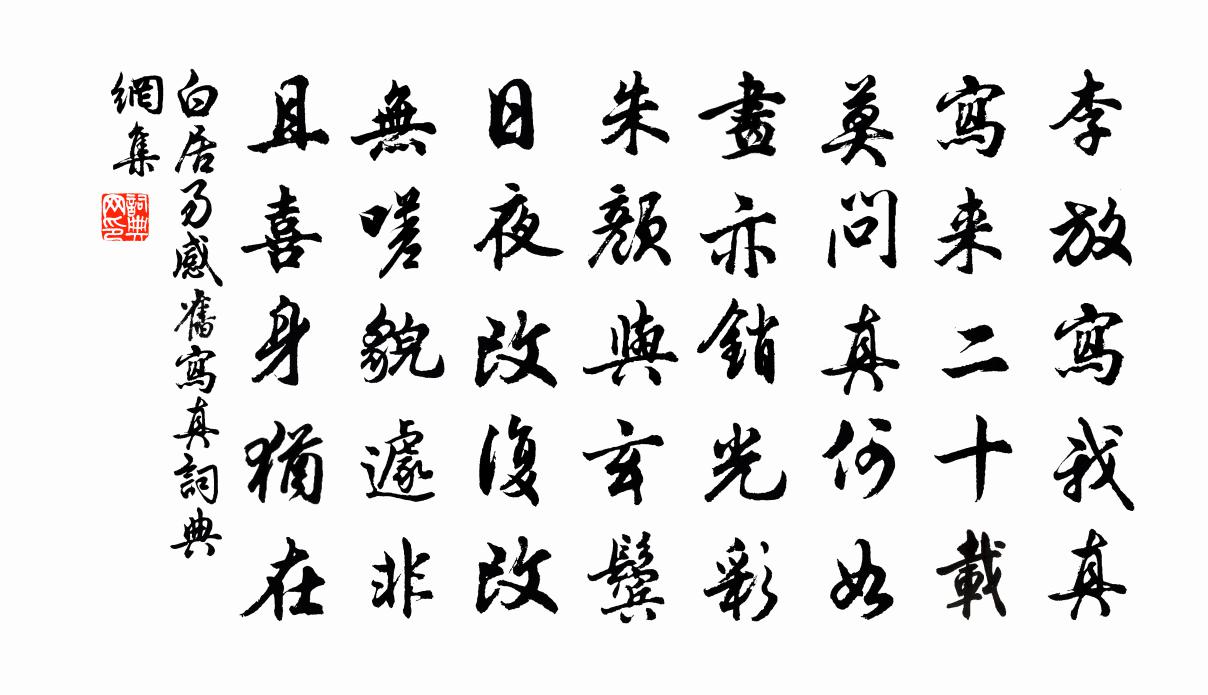 李放寫我真
寫来二十載
莫問真何如
畫亦銷光彩
朱顏與玄鬢
日夜改復改
無嗟貌遽非
且喜身猶在
白居易感舊寫真詞典
網集
詞典
网印